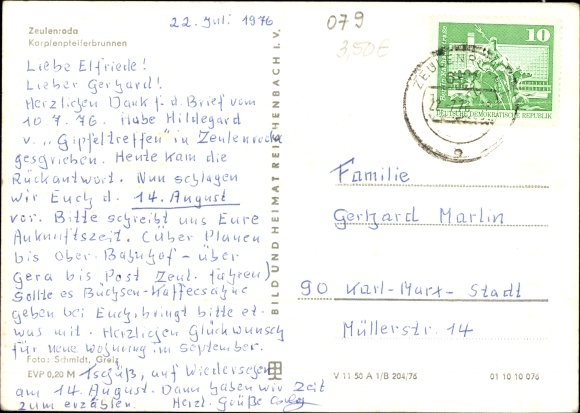 Zeulenroda
Karpfenpfeiferbrunnen
22. Juli 1976
Liebe Elfriede!
Lieber Gerhard!
Herzlichen Dank f. d. Brief vom
10.7.76. Habe Hildegard
v. „Gipfeltreffen" in Zeulenroda
geschrieben. Heute kam die
Rückantwort. Nun schlagen
wir Euch d. 14. August
vor. Bitte schreibt uns Eure
Ankunftszeit. (über Plauen
bis Ober. Bahnhof - über
Gera bis Post Zeul. fahren)
Sollte es Büchsen-Kaffeesahne
geben bei Euch, bringt bitte et-
was mit. Herzlichen Glückwunsch
für neue Wohnung im September.
Tschüß, auf Wiedersehen
am 14. August. Dann haben wir Zeit
zum erzählen. Herzl. Grüße
Foto: Schmidt, Greiz
EVP 0,20 M
BILD UND HEIMAT REICHENBACH I. V.
079
3,50€
10
DEUTSCHE DEMOKRATISCHE REPUBLIK
ZEULENR
Familie
Gerhard Martin
90 Karl-Marx-Stadt
Müllerstr. 14
V 11 50 A 1/B 204/76
01 10 10 076